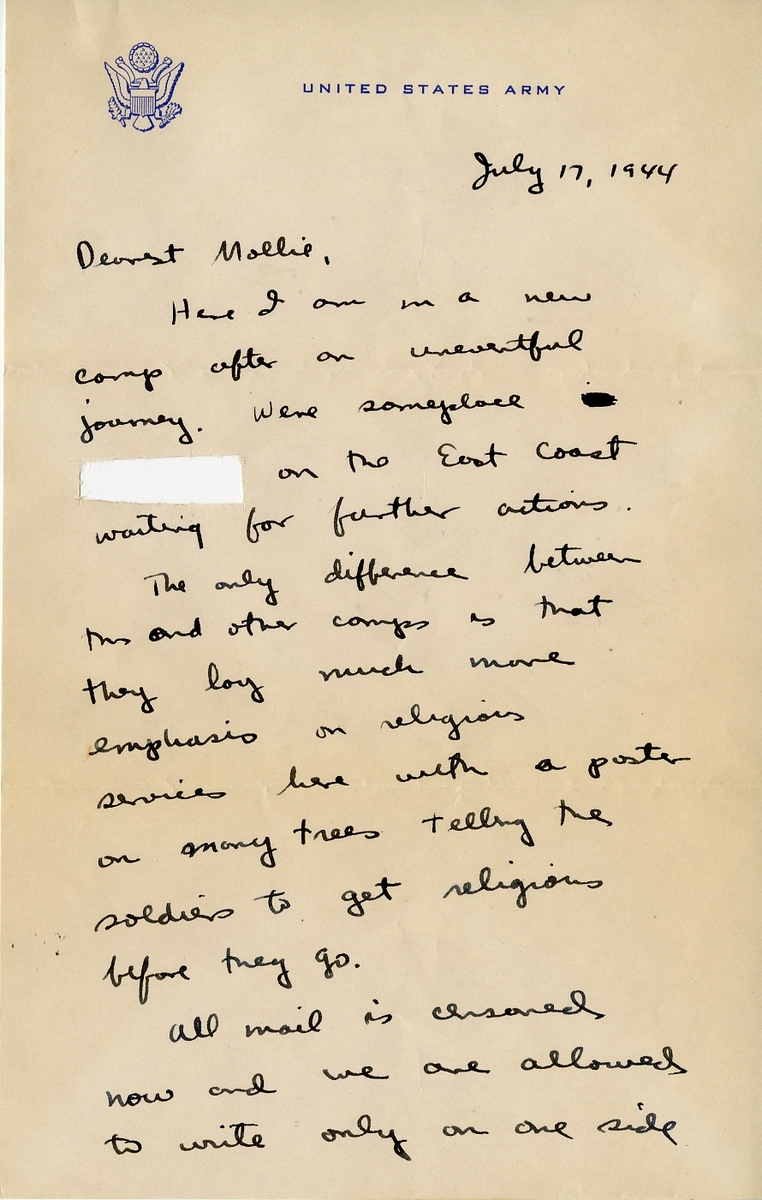 UNITED STATES ARMY
July 17, 1944
Dearest Mollie,
Here I am in a new
camp after an uneventful
journey. Were someplace
on the East Coast
waiting for further actions.
The only difference between
this and other camps is that
they lay much more
emphasis on religious
services here with a poster
on many trees telling the
soldiers to get religious
before they go.
All mail is censored
now and we are allowed
to write only on one side